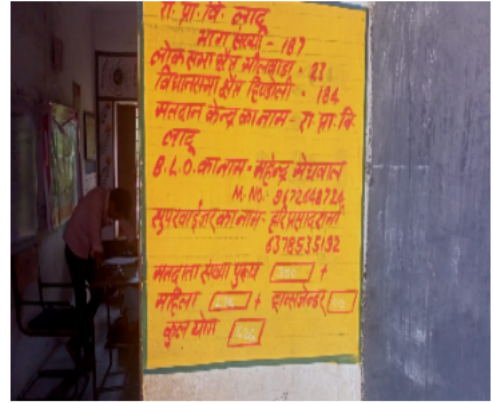 रा. प्रा. वि. लादू
भाग संख्या - 187
लोकसभा क्षेत्र भीलवाडा - 23
विधानसभा क्षेत्र हिण्डोली - 184
मतदान केन्द्र का नाम - रा प्रा. वि.
लादू
B.L.O. का नाम - महेन्द्र मेघवाल
M. No. 9672048726
सुपरवाईजर का नाम - हरिप्रसाद शर्मा
6378535192
मतदाता संख्या पुरूष +
महिला + ट्रान्सजेन्डर
कुल योग